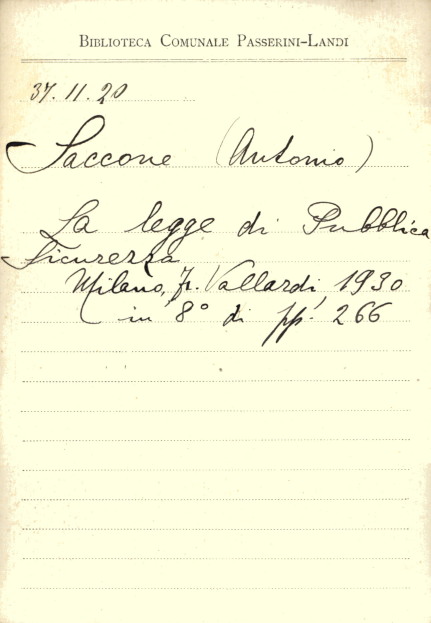 BIBLIOTECA COMUNALE PASSERINI-LANDI
37.11.20
Saccone (Antonio)
La legge di Pubblica
Sicurezza
Milano, Fr. Vallardi, 1930
in 8° di pp. 266